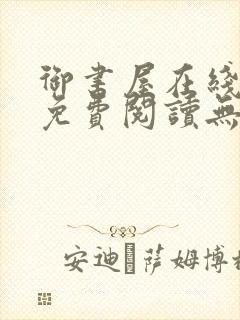 御書屋在綫
免費閱讀無
安迪·薩姆博